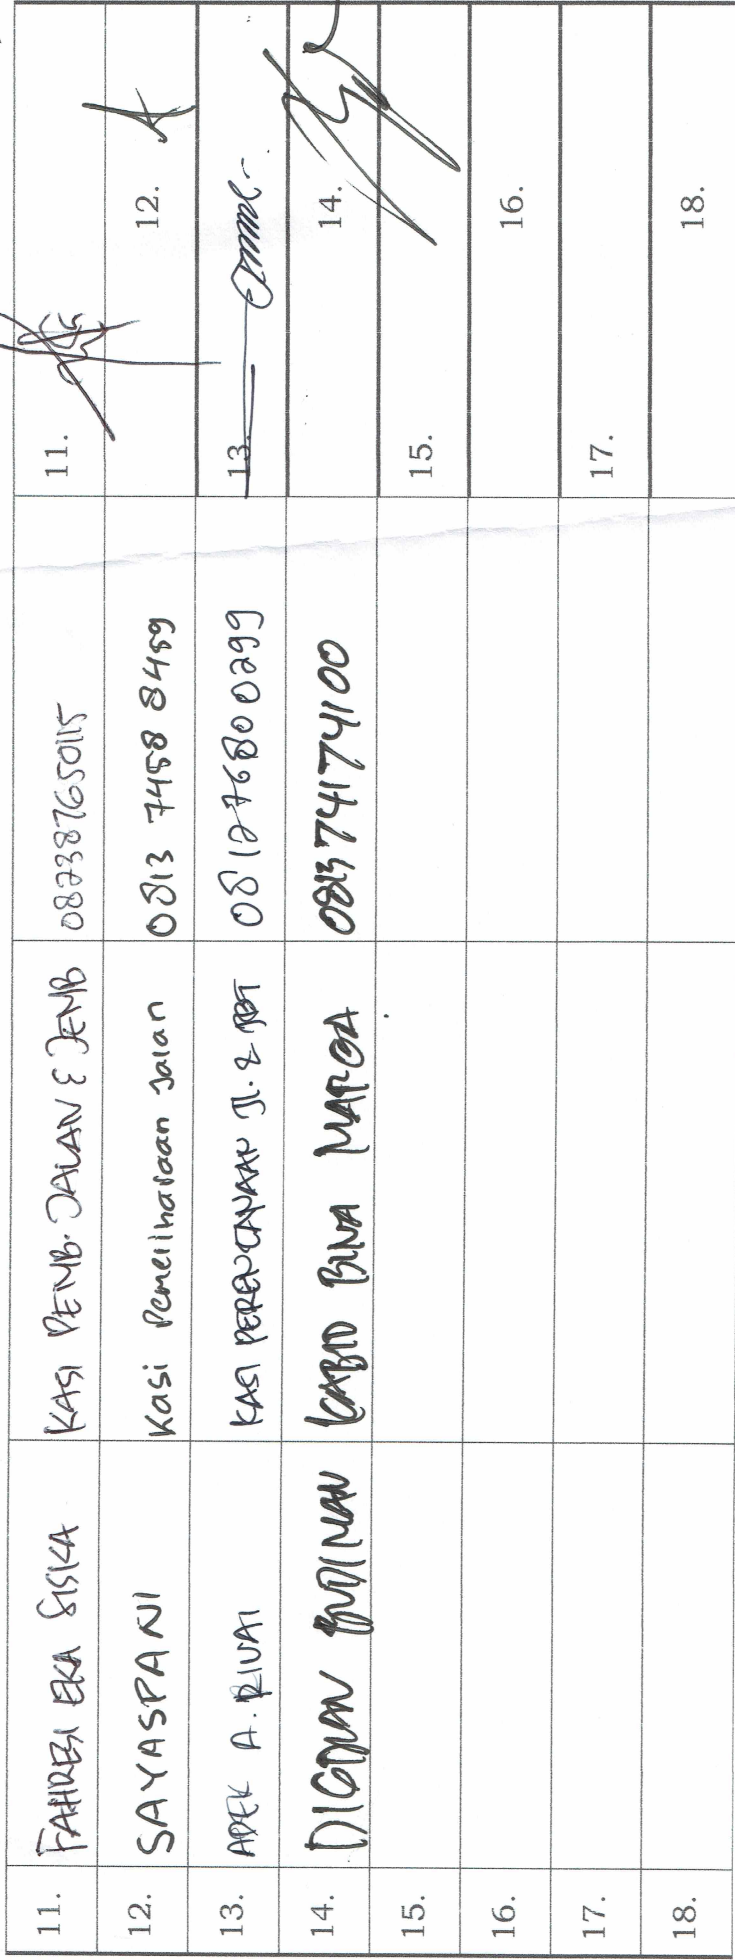 11. FAHRESI EKA SISKA KASI PEMB. JALAN & JEMB 082387650115 11.
12. SAYASPANI Kasi Pemeliharaan Jalan 0813 7458 8459 12.
13. ADEK A. RIVAI KASI PERENCANAAN JL. & JBT 081276800299 13.
14. BUDIMAN KABID BINA MARGA 081374174100 14.
15. 15.
16. 16.
17. 17.
18. 18.